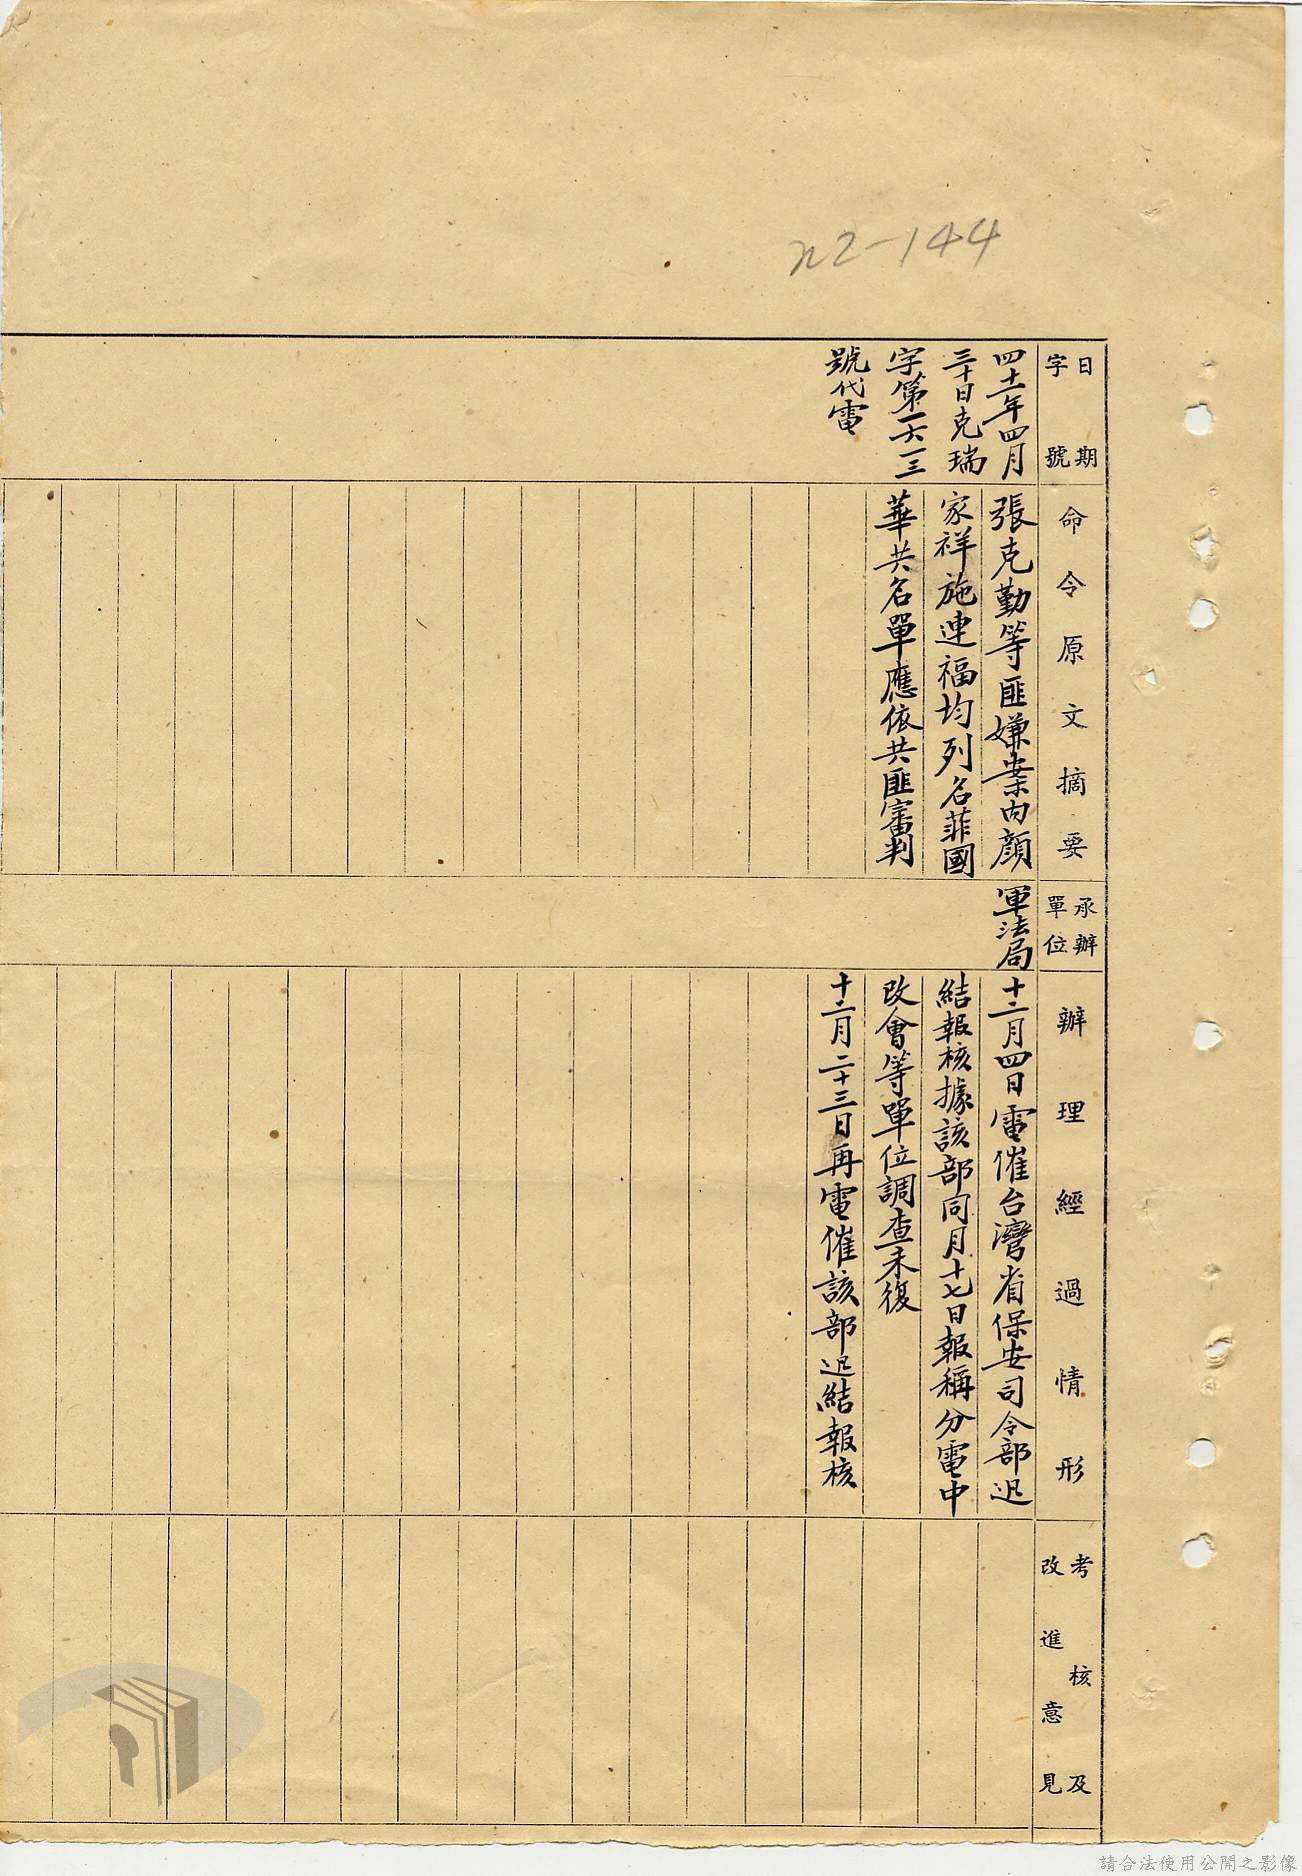 n2-144
日期
字號
四十一年四月
三十日克瑞
字第一六一三
號代電
命令原文摘要
張克勤等匪嫌案內顏
家祥施連福均列名菲國
華共名單應依共匪審判
承辦
單位
軍法局
辦理經過情形
十二月四日電催台灣省保安司令部迅
結報核據該部同月十七日報稱分電中
改會等單位調查未復
十二月二十三日再電催該部迅結報核
考核及
改進意見
請合法使用公開之影像